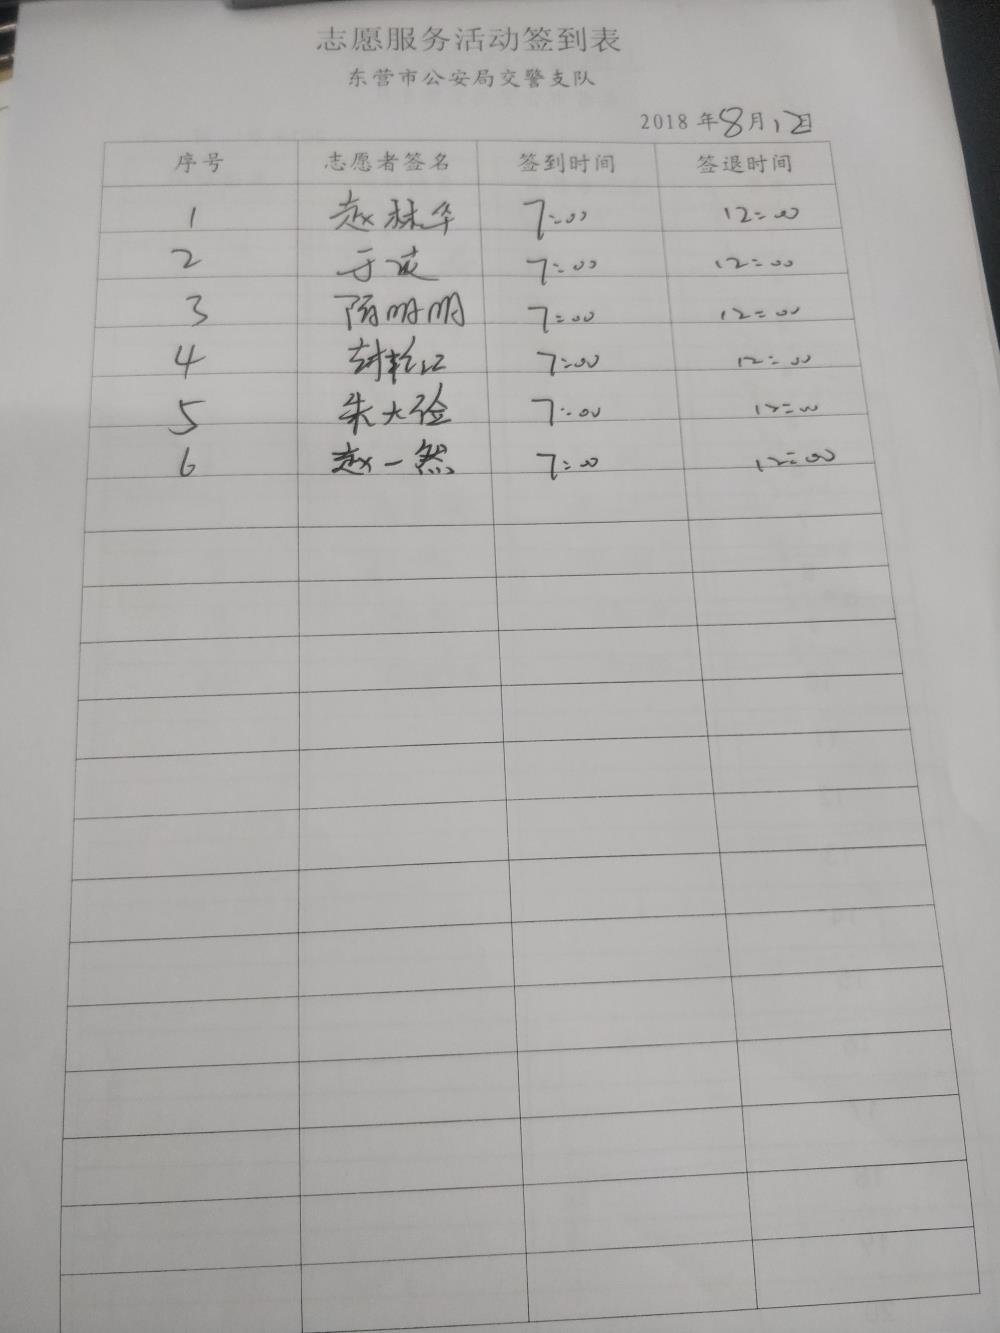 志愿服务活动签到表
东营市公安局交警支队
2018 年 8 月 12 日
序号 志愿者签名 签到时间 签退时间
1 赵林华 7:00 12:00
2 7:00 12:00
3 明明 7:00 12:00
4 7:00 12:00
5 朱大 7:00 12:00
6 赵一然 7:00 12:00